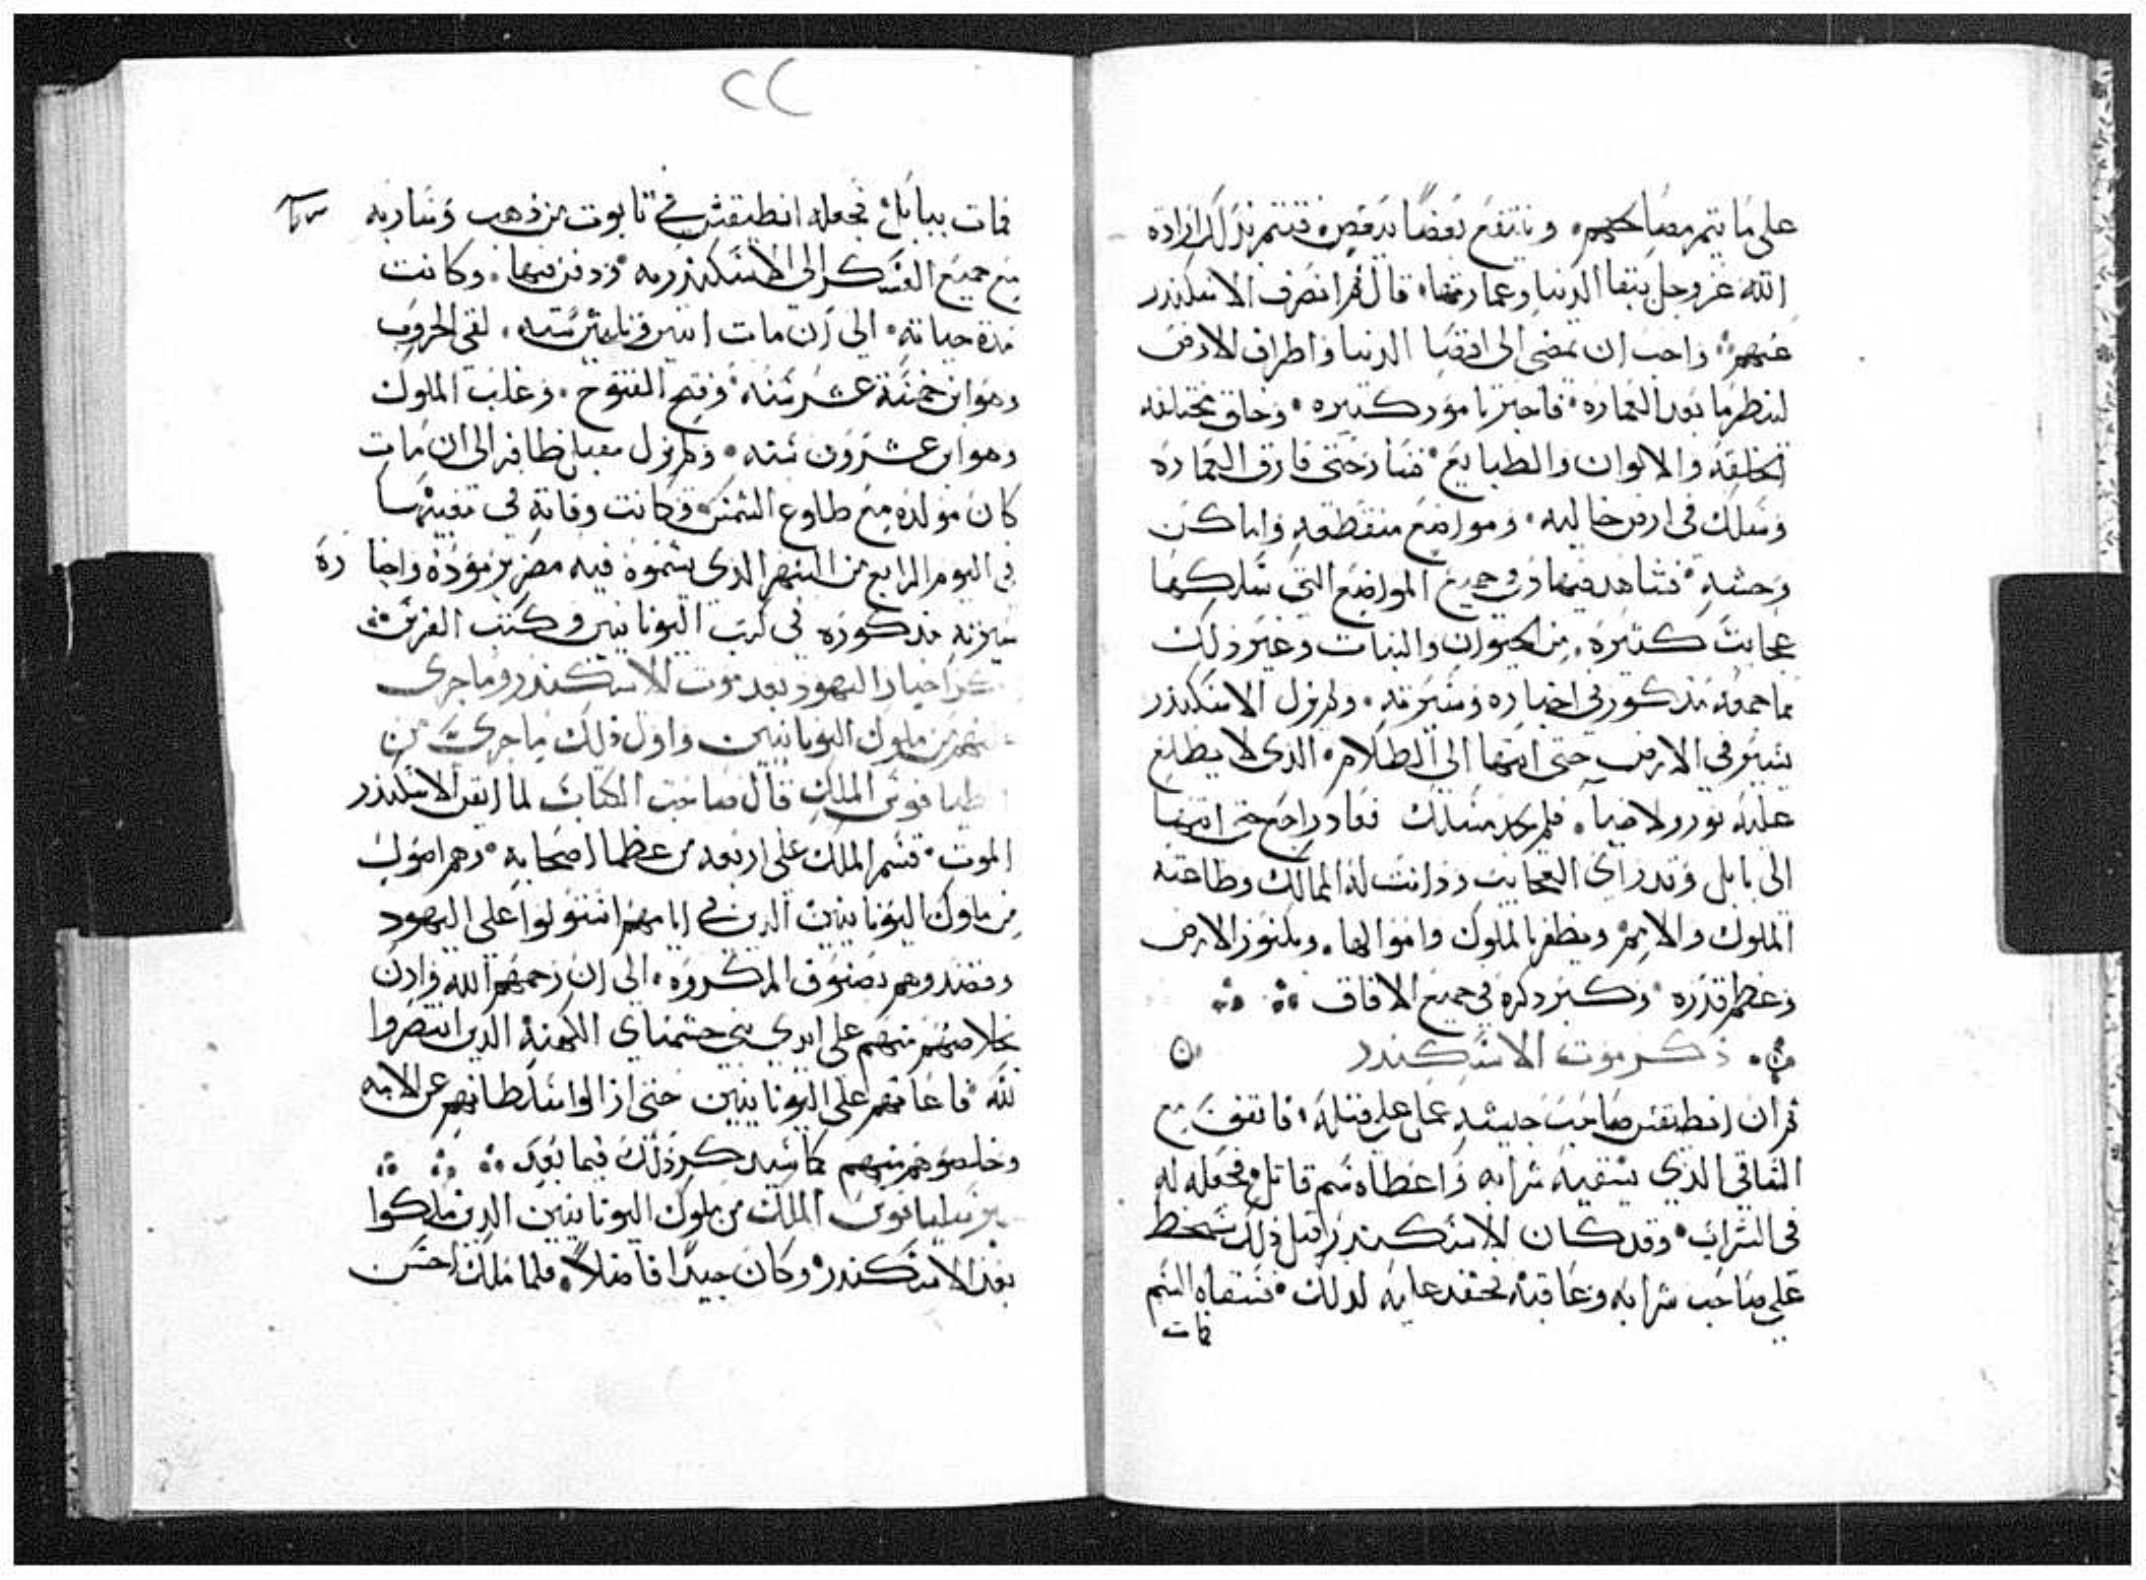 على ما يتم مصالحهم. وينتفع بعضا ببعض. فتتم بذلك ارادة
الله عز وجل ببقا الدنيا وعمارتها. قال ثم انصرف الاسكندر
عنهم. واحب ان يمضي الى اقصا الدنيا واطراف الارض
لينظر ما بعد العماره. فاخبر بامور كثيره. وخلق مختلفه
الخلقه والالوان والطبايع. فسار حتى فارق العماره
وسلك في ارض خاليه. ومواضع منقطعه واماكن
وحشه. فشاهد فيها وفي جميع المواضع التي سلكها
عجايب كثيره. من الحيوان والنبات وغير ذلك
مما جميعه مذكور في اخباره وسيرته. ولم يزل الاسكندر
يسير في الارض حتى انتها الى الظلام. الذي لا يطلع
عليه نور ولا ضيا. فلم يجد مسلك فعاد راجع حتى انتها
الى بابل وقد راى العجايب ودانت له الممالك وطاعته
الملوك والامم وظفر بالملوك واموالها. وبكنوز الارض
وعظم قدره. وكبر ذكره في جميع الافاق
ذكر موت الاسكندر
ثم ان انطبقس صاحب جيشه عمل على قتله. فاتفق مع
الساقي الذي يسقيه شرابه واعطاه سم قاتل فجعله له
في الشراب. وقد كان الاسكندر قبل ذلك سخط
على صاحب شرابه وعاقبه فحقد عليه لذلك. فسقاه السم
فمات
٢٢
فمات ببابل فجعله انطبقس في تابوت من ذهب وسار به
مع جميع العسكر الى الاسكندريه. ودفن فيها. وكانت
مدة حياته. الى ان مات اثنين وثلثين سنه. لقى الحروب
وهو ابن خمسة عشر سنه. وفتح الفتوح. وغلب الملوك
وهو ابن عشرون سنه. ولم يزل مقبل ظافر الى ان مات
كان مولده مع طلوع الشمس وكانت وفاته في مغيبها
في اليوم الرابع من الشهر الذي يسموه فيه مصر برموده واخباره
سيرته مذكوره في كتب اليونانيين وكتب الفرس
ذكر اخبار اليهود بعد موت الاسكندر وما جرى
عليهم من ملوك اليونانيين واول ذلك ما جرى من
الملك قال صاحب الكتاب لما ايقن الاسكندر
الموت. قسم الملك على اربعه من عظما اصحابه. وهم اصول
من ملوك اليونانيين الذين في ايامهم استولوا على اليهود
وقصدوهم بصنوف المكروه. الى ان رحمهم الله واذن
بخلاصهم منهم على ايدي بني حشمناي الكهنة الذين انتصروا
لله. فاعانهم على اليونانيين حتى ازالوا سلطانهم عن الامه
وخلصوهم منهم كما سيذكر ذلك فيما بعد
الملك من ملوك اليونانيين الذين ملكوا
بعد الاسكندر وكان جيدا فاضلا. فلما ملك احسن